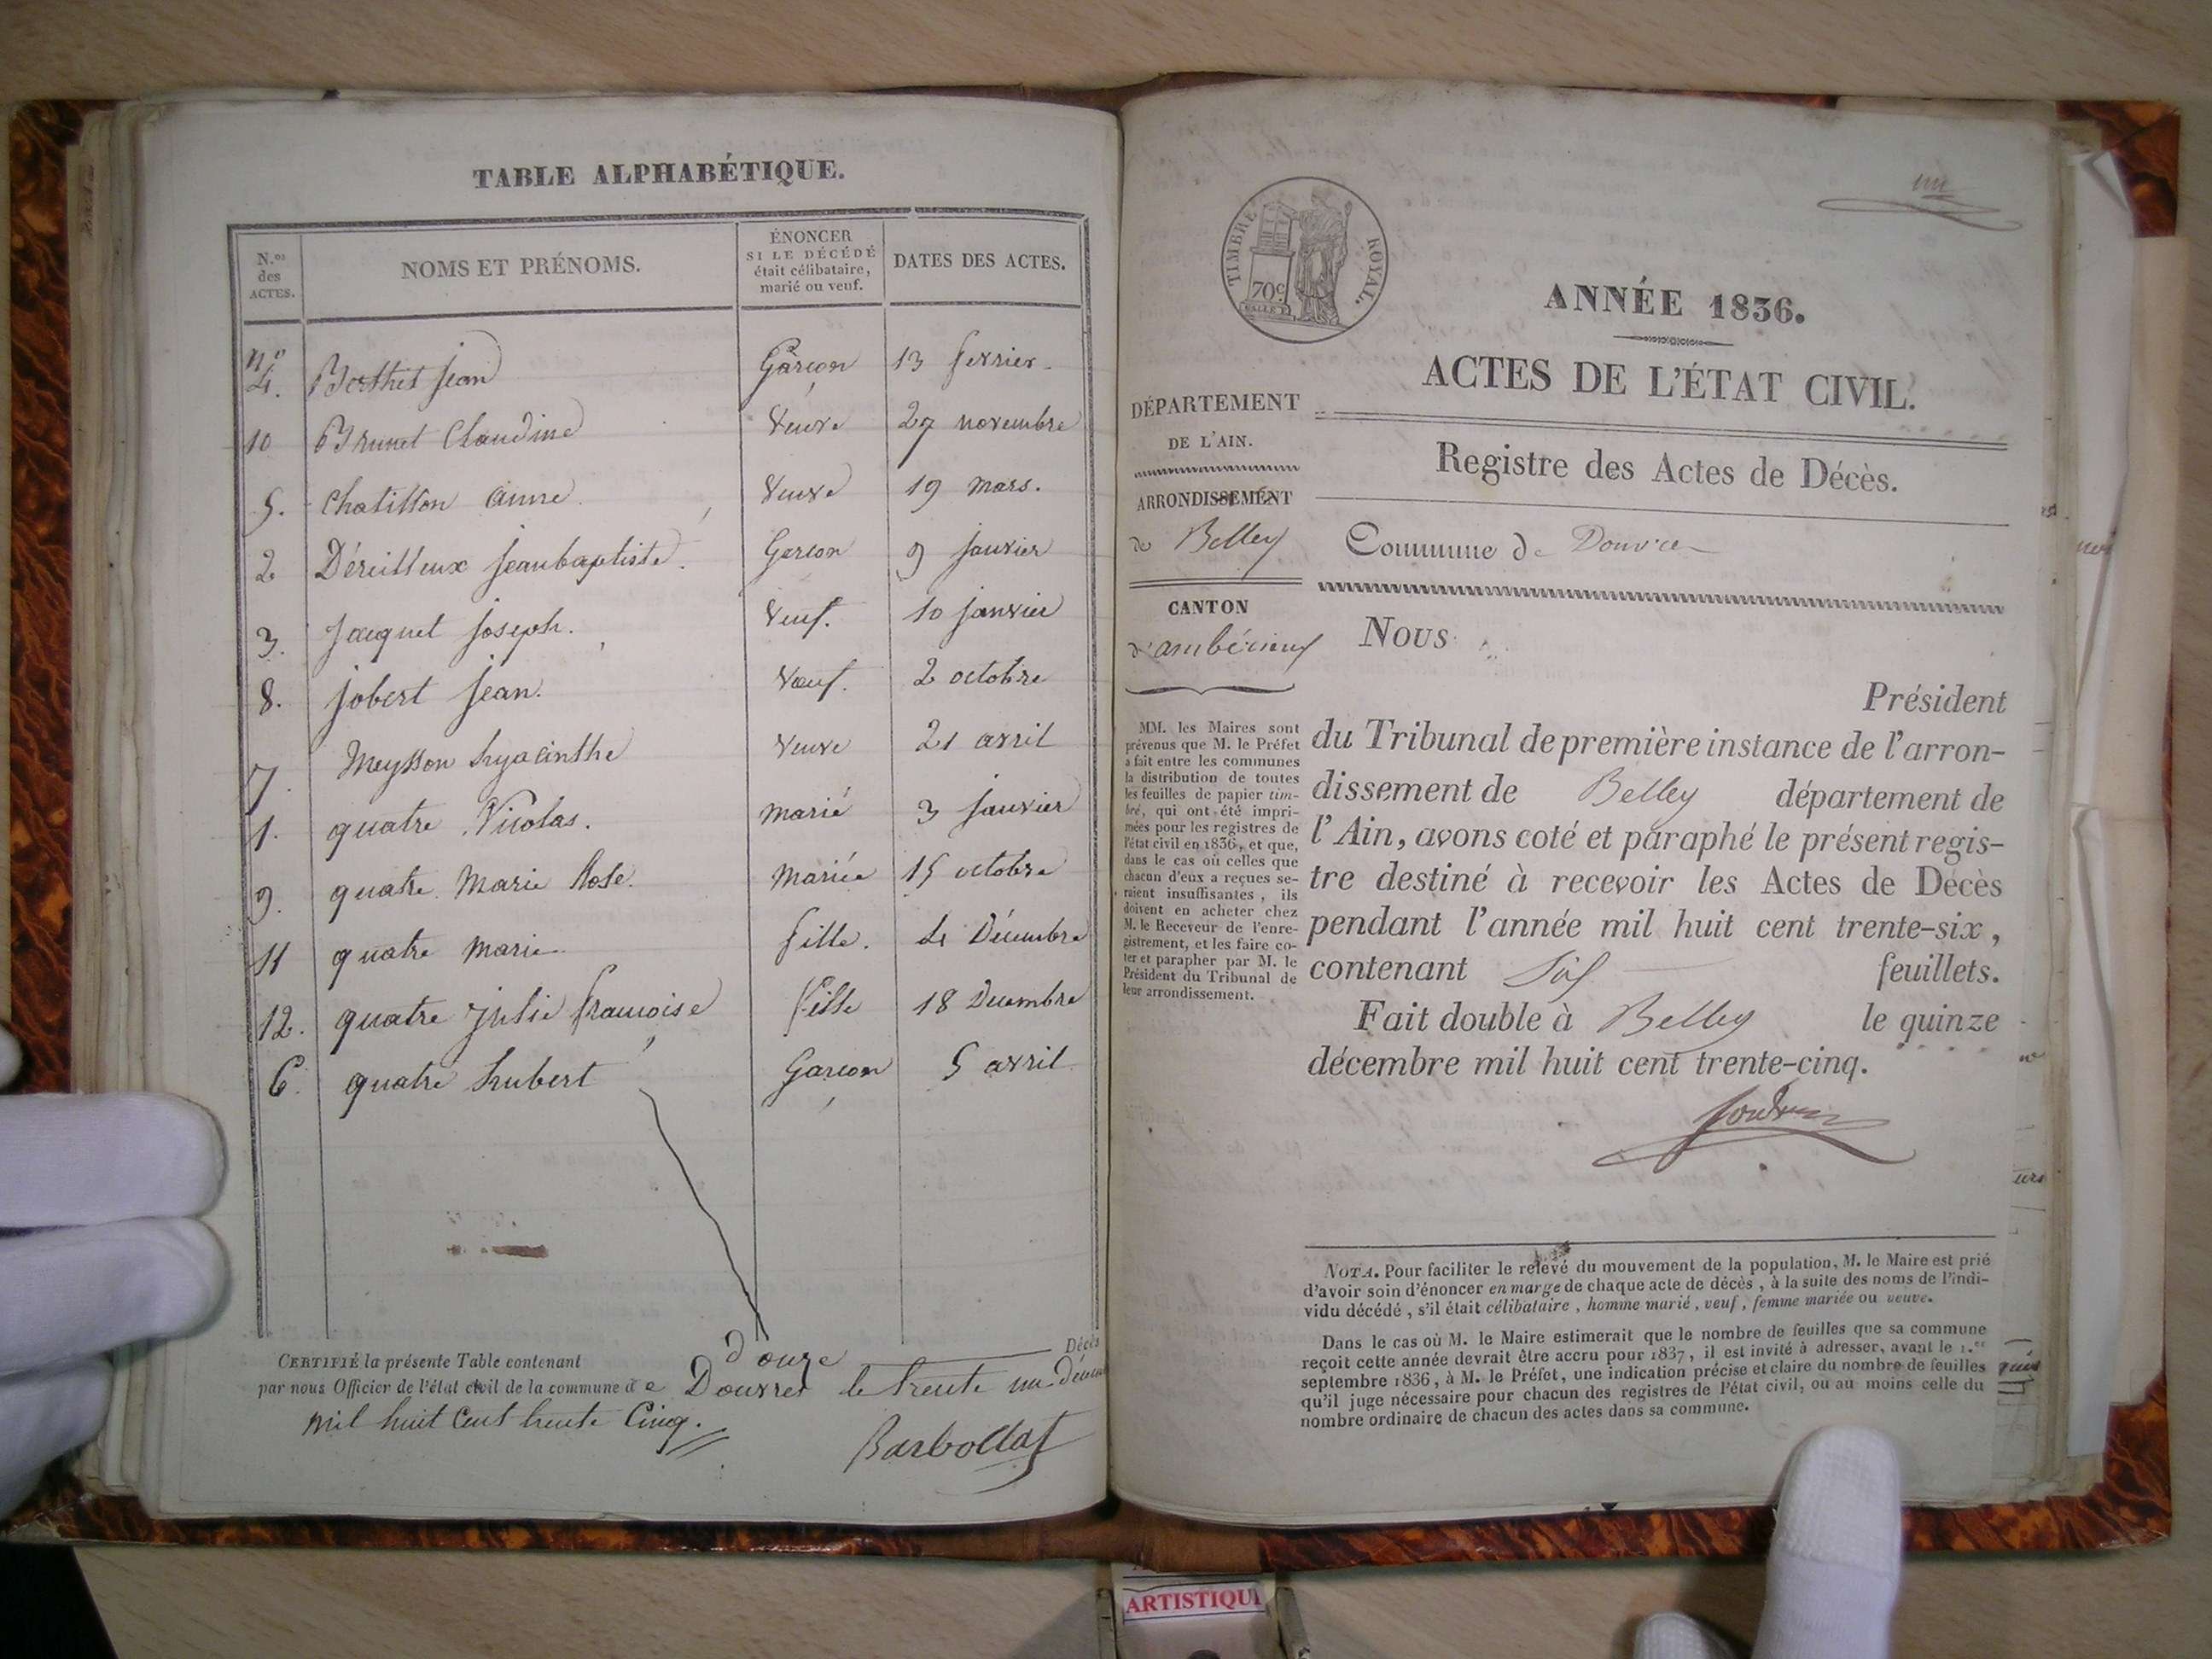 TABLE ALPHABÉTIQUE.
N.os des ACTES.
NOMS ET PRÉNOMS.
ÉNONCER SI LE DÉCÉDÉ était célibataire, marié ou veuf.
DATES DES ACTES.
n° 4. Berthet Jean Garcon 13 fevrier
10 Brunet Claudine Veuve 27 novembre
5. Chatillon anne Veuve 19 mars.
2 Déreilleux Jeanbaptiste. Garcon 9 Janvier
3. Jacquet Joseph. Veuf. 10 Janvier
8. Jobert Jean. Veuf. 2 octobre
7. Meysson hyacinthe Veuve 21 avril
1. quatre Nicolas. marié 3 Janvier
9. quatre Marie Rose. mariée 15 octobre
11 quatre marie fille. 4 Décembre
12. quatre Julie francoise fille 18 Decembre
6. quatre hubert Garcon 5 avril
CERTIFIÉ la présente Table contenant douze Décès
par nous Officier de l'état civil de la commune de Douvres le trente un
mil huit cent trente Cinq.
Barbollat
un
TIMBRE ROYAL.
70c
ANNÉE 1836.
ACTES DE L'ÉTAT CIVIL.
DÉPARTEMENT
DE L'AIN.
Registre des Actes de Décès.
ARRONDISSEMENT
de Belley
Commune de Douvres
CANTON
d'ambérieux
Nous
Président
du Tribunal de première instance de l'arron-
dissement de Belley département de
l'Ain, avons coté et paraphé le présent regis-
tre destiné à recevoir les Actes de Décès
pendant l'année mil huit cent trente-six,
contenant Six feuillets.
Fait double à Belley le quinze
décembre mil huit cent trente-cinq.
MM. les Maires sont
prévenus que M. le Préfet
a fait entre les communes
la distribution de toutes
les feuilles de papier tim-
bré, qui ont été impri-
mées pour les registres de
l'état civil en 1836, et que,
dans le cas où celles que
chacun d'eux a reçues se-
raient insuffisantes, ils
doivent en acheter chez
M. le Receveur de l'enre-
gistrement, et les faire co-
ter et parapher par M. le
Président du Tribunal de
leur arrondissement.
NOTA. Pour faciliter le relevé du mouvement de la population, M. le Maire est prié
d'avoir soin d'énoncer en marge de chaque acte de décès, à la suite des noms de l'indi-
vidu décédé, s'il était célibataire, homme marié, veuf, femme mariée ou veuve.
Dans le cas où M. le Maire estimerait que le nombre de feuilles que sa commune
reçoit cette année devrait être accru pour 1837, il est invité à adresser, avant le 1.er
septembre 1836, à M. le Préfet, une indication précise et claire du nombre de feuilles
qu'il juge nécessaire pour chacun des registres de l'état civil, ou au moins celle du
nombre ordinaire de chacun des actes dans sa commune.
ARTISTIQU